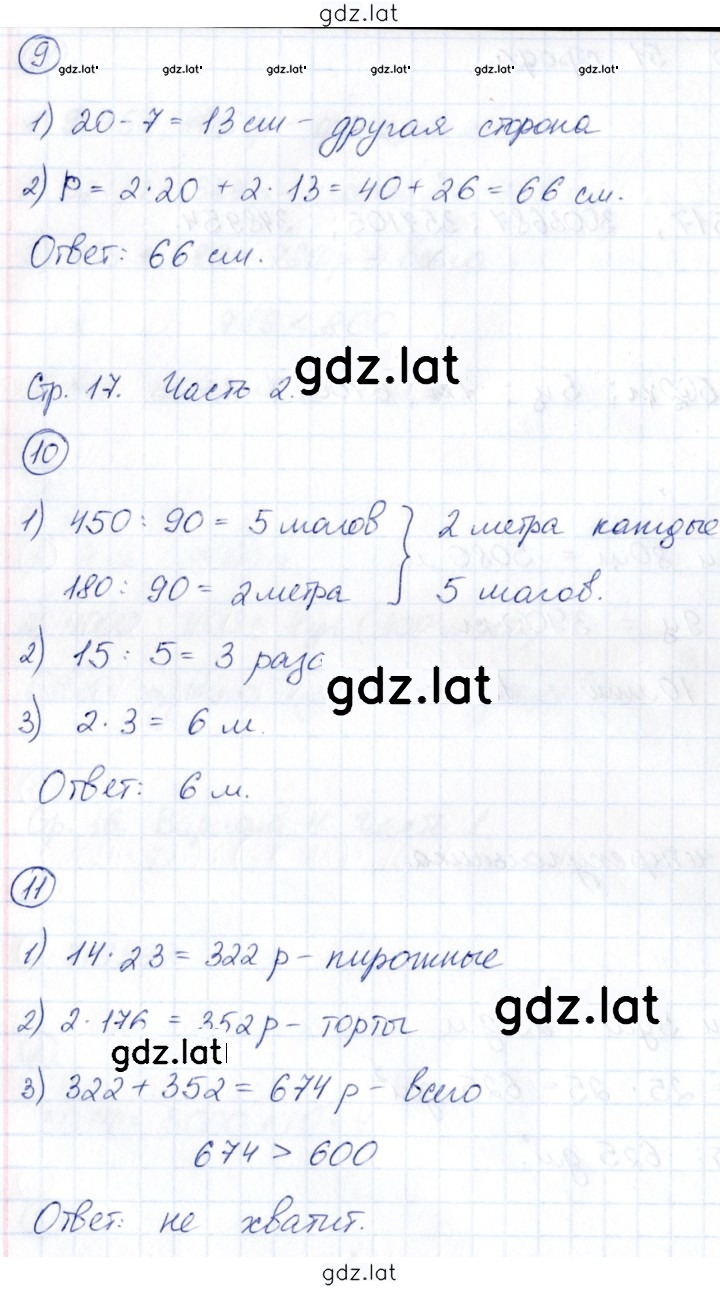 gdz.lat
9
gdz.lat gdz.lat gdz.lat gdz.lat gdz.lat gdz.lat
1) 20 - 7 = 13 см - другая сторона
2) P = 2·20 + 2·13 = 40 + 26 = 66 см.
Ответ: 66 см.
gdz.lat
Стр. 17. Часть 2.
10
1) 450 : 90 = 5 шагов } 2 метра каждые
180 : 90 = 2 метра 5 шагов.
2) 15 : 5 = 3 раза
gdz.lat
3) 2·3 = 6 м.
Ответ: 6 м.
11
1) 14·23 = 322 р - пирожные
gdz.lat
2) 2·176 = 352 р - торты
gdz.lat
3) 322 + 352 = 674 р - всего
674 > 600
Ответ: не хватит.
gdz.lat